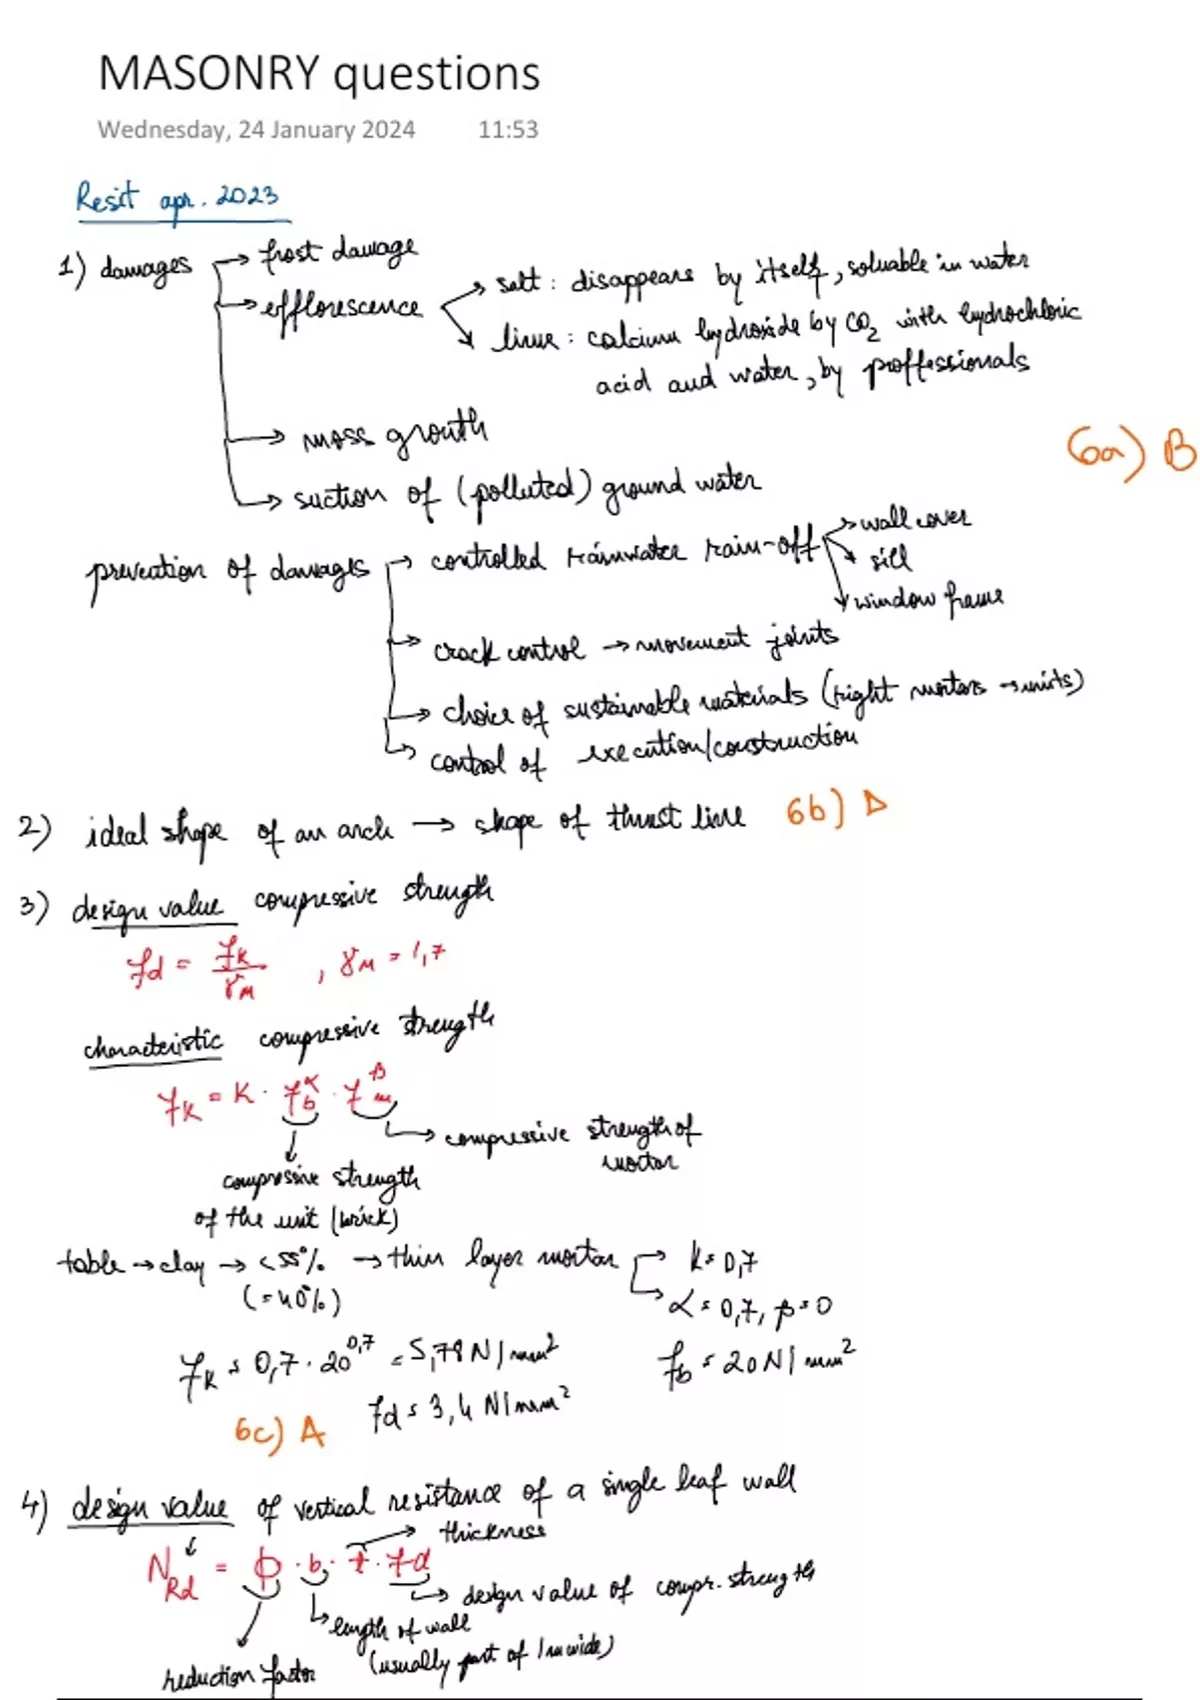 MASONRY questions
Wednesday, 24 January 2024 11:53
Resit apr. 2023
1) damages → frost damage
→ efflorescence → salt : disappears by itself, soluable in water
→ lime : calcium hydroxide by CO₂ with hydrochloric
acid and water, by proffessionals
→ moss growth
6a) B
→ suction of (polluted) ground water
prevention of damages → controlled rainwater rain-off → wall cover
→ sill
→ window frame
→ crack control → movement joints
→ choice of sustainable materials (right mortars → units)
→ control of execution/construction
2) ideal shape of an arch → shape of thrust line 6b) D
3) design value compressive strength
fd = fk/γM , γM = 1,7
characteristic compressive strength
fk = K · fb^α · fm^β
→ compressive strength of
mortar
compressive strength
of the unit (brick)
table → clay → < 55% → thin layer mortar → K = 0,7
(= 40%) → α = 0,7, β = 0
fk = 0,7 · 20^0,7 = 5,78 N/mm² fb = 20 N/mm²
fd = 3,4 N/mm²
6c) A
4) design value of vertical resistance of a single leaf wall
→ thickness
NRd = ϕ · b · t · fd
→ design value of compr. strength
→ length of wall
(usually part of 1m wide)
reduction factor